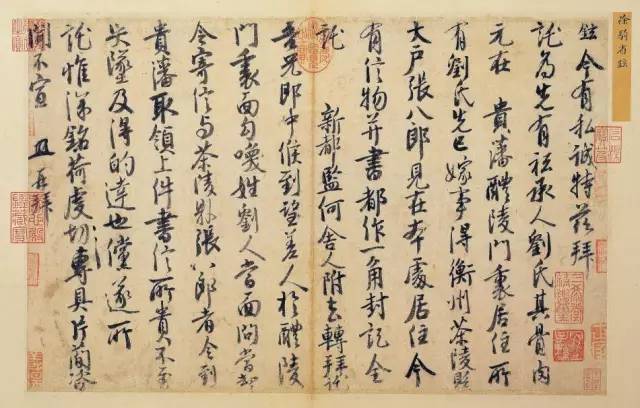 徐騎省鉉
鉉今有私誠特兹拜
託為先有祗承人劉氏其骨肉
元在 貴藩醴陵門裏居住所
有劉氏先已嫁事得衡州茶陵縣
大戶張八郎見在本處居住今
有信物并書都作一角封記全
託 新都監何舍人附去轉拜託
吾兄郎中候到望差人於醴陵
門裏面勾喚姓劉人當面問當却
令寄信与茶陵縣張八郎者令到
貴藩取領上件書信所貴不至
失墜及得的達也儻遂所
託惟深銘荷虔切專具片簡咨
聞不宣 鉉再拜